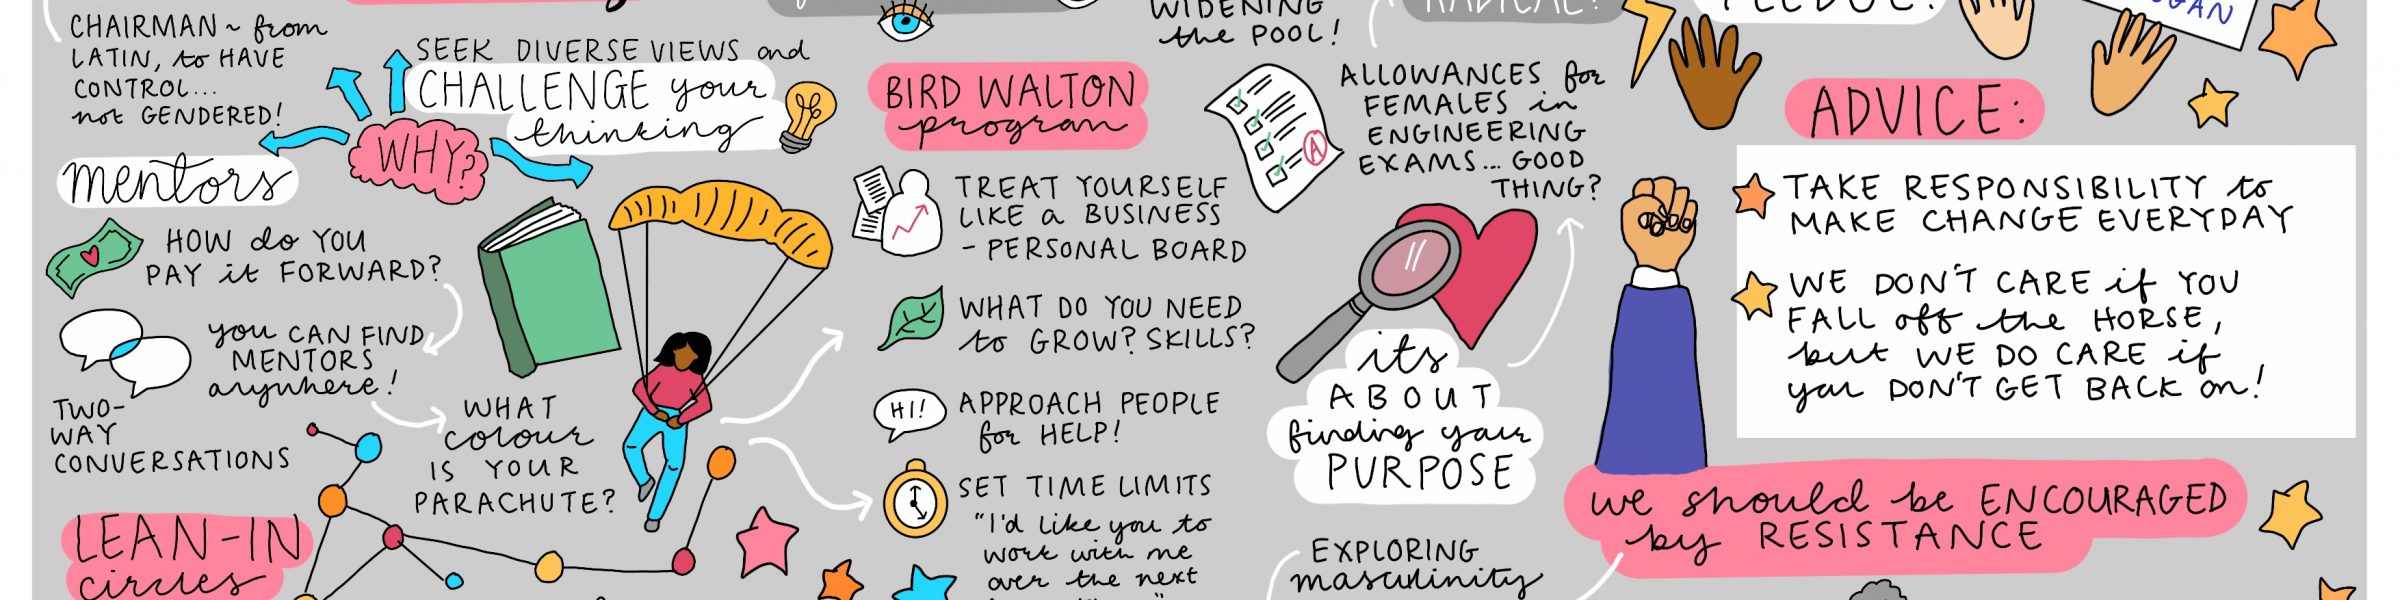 CHAIRMAN ~ from
LATIN, to HAVE
CONTROL...
not GENDERED!
SEEK DIVERSE VIEWS and
CHALLENGE your
thinking
WHY?
mentors
HOW do YOU
PAY it FORWARD?
you CAN FIND
MENTORS
anywhere!
TWO-
WAY
CONVERSATIONS
WHAT
colour
IS YOUR
PARACHUTE?
LEAN-IN
circles
WIDENING
the POOL!
BIRD WALTON
program
TREAT YOURSELF
LIKE a BUSINESS
- PERSONAL BOARD
WHAT DO YOU NEED
to GROW? SKILLS?
HI!
APPROACH PEOPLE
for HELP!
SET TIME LIMITS
"I'd like you to
work with me
over the next
RADICAL?
A
ALLOWANCES for
FEMALES in
ENGINEERING
EXAMS... GOOD
THING?
its
ABOUT
finding your
PURPOSE
EXPLORING
masculinity
PLEDGE!
ADVICE:
TAKE RESPONSIBILITY to
MAKE CHANGE EVERYDAY
WE DON'T CARE if YOU
FALL off the HORSE,
but WE DO CARE if
you DON'T GET BACK on!
we should be ENCOURAGED
by RESISTANCE